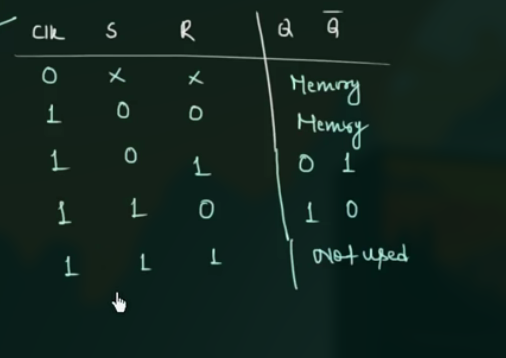 Clk S R Q Q̅
0 × × Memory
1 0 0 Memory
1 0 1 0 1
1 1 0 1 0
1 1 1 Not used